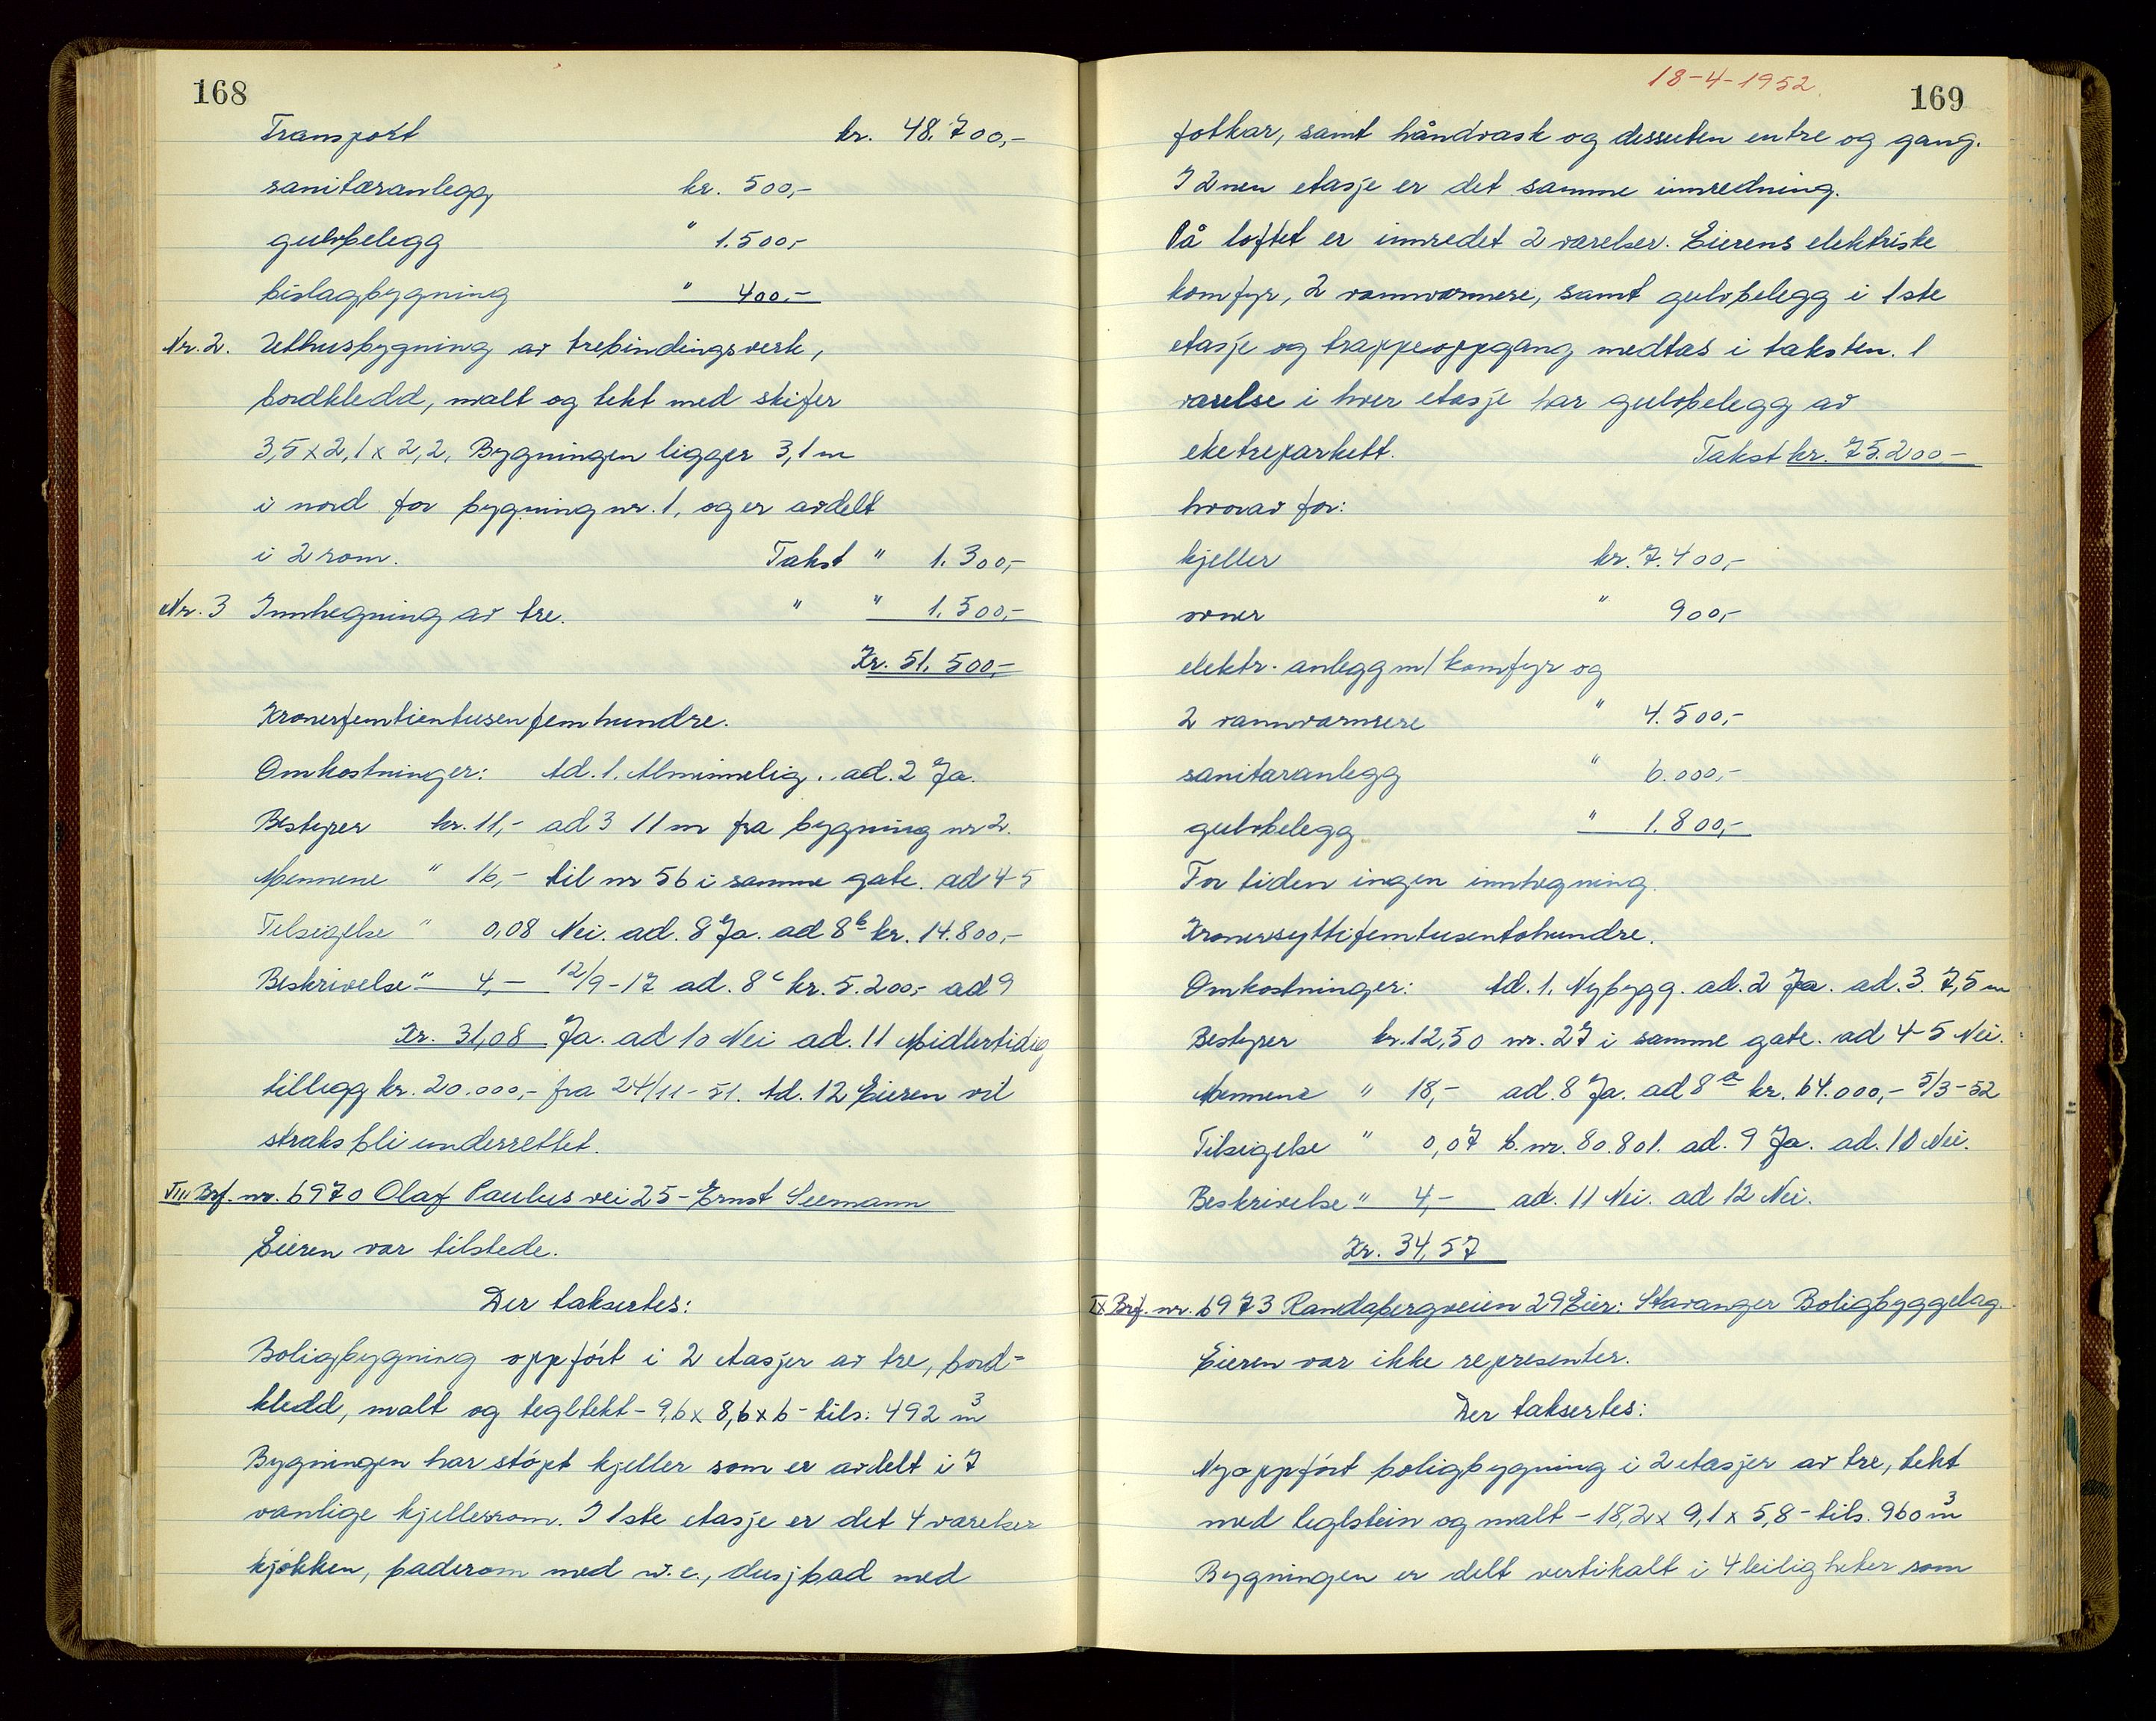 168
Transport kr. 48.700,-
sanitæranlegg kr. 500,-
gulvbelegg " 1.500,-
bislagbygning " 400,-
Nr. 2. Uthusbygning av trebindingsverk,
bordkledd, malt og tekt med skifer
3,5 x 2,1 x 2,2. Bygningen ligger 3,1 m
i nord for bygning nr. 1, og er avdelt
i 2 rom. Takst " 1.300,-
Nr. 3 Innhegning av tre. " " 1.500,-
Kr. 51.500,-
Kronerfemtientusenfemhundre.
Omkostninger: Ad. 1. Alminnelig. ad. 2 Ja.
Bestyrer kr. 11,- ad 3 11 m fra bygning nr 2.
Mennene " 16,- til nr 56 i samme gate. ad 4-5
Tilsigelse " 0,08 Nei. ad. 8 Ja. ad 8 b kr. 14.800,-
Beskrivelse " 4,- 12/9-17 ad. 8 c kr. 5.200,- ad 9
Kr. 31,08 Ja. ad 10 Nei ad. 11 Midlertidig
tillegg kr. 20.000,- fra 24/11-51. Ad. 12 Eieren vil
straks bli underrettet.
VIII Brf. nr. 6970 Olaf Paulus vei 25 - Ernst Seemann
Eieren var tilstede.
Der taksertes:
Boligbygning oppført i 2 etasjer av tre, bord=
kledd, malt og tegltekt - 9,6 x 8,6 x 6 - tils: 492 m3
Bygningen har støpt kjeller som er avdelt i 7
vanlige kjellerrom. I 1ste etasje er det 4 værelser
kjøkken, baderom med w.c., dusjbad med
18-4-1952
169
fotkar, samt håndvask og dessuten entre og gang.
I 2nen etasje er det samme innredning.
På loftet er innredet 2 værelser. Eierens elektriske
komfyr, 2 vannvarmere, samt gulvbelegg i 1ste
etasje og trappeoppgang medtas i taksten. 1
værelse i hver etasje har gulvbelegg av
eketreparkett. Takst kr. 75.200,-
hvorav for:
kjeller kr. 7.400,-
ovner " 900,-
elektr. anlegg m/ komfyr og
2 vannvarmere " 4.500,-
sanitæranlegg " 6.000,-
gulvbelegg " 1.800,-
For tiden ingen innhegning.
Kronersyttifemtusentohundre.
Omkostninger: Ad. 1. Nybygg. ad. 2 Ja. ad. 3. 7,5 m
Bestyrer kr. 12,50 nr. 27 i samme gate. ad 4-5 Nei.
Mennene " 18,- ad. 8 Ja. ad 8 a kr. 64.000,- 5/3-52
Tilsigelse " 0,07 b. nr. 80.801. ad. 9 Ja. ad. 10 Nei.
Beskrivelse " 4,- ad. 11 Nei. ad 12 Nei.
Kr. 34,57
IX Brf. nr. 6973 Randabergveien 29 Eier: Stavanger Boligbyggelag.
Eieren var ikke representer.
Der taksertes:
Nyoppført boligbygning i 2 etasjer av tre, tekt
med teglstein og malt - 18,2 x 9,1 x 5,8 - tils. 960 m3
Bygningen er delt vertikalt i 4 leiligheter som